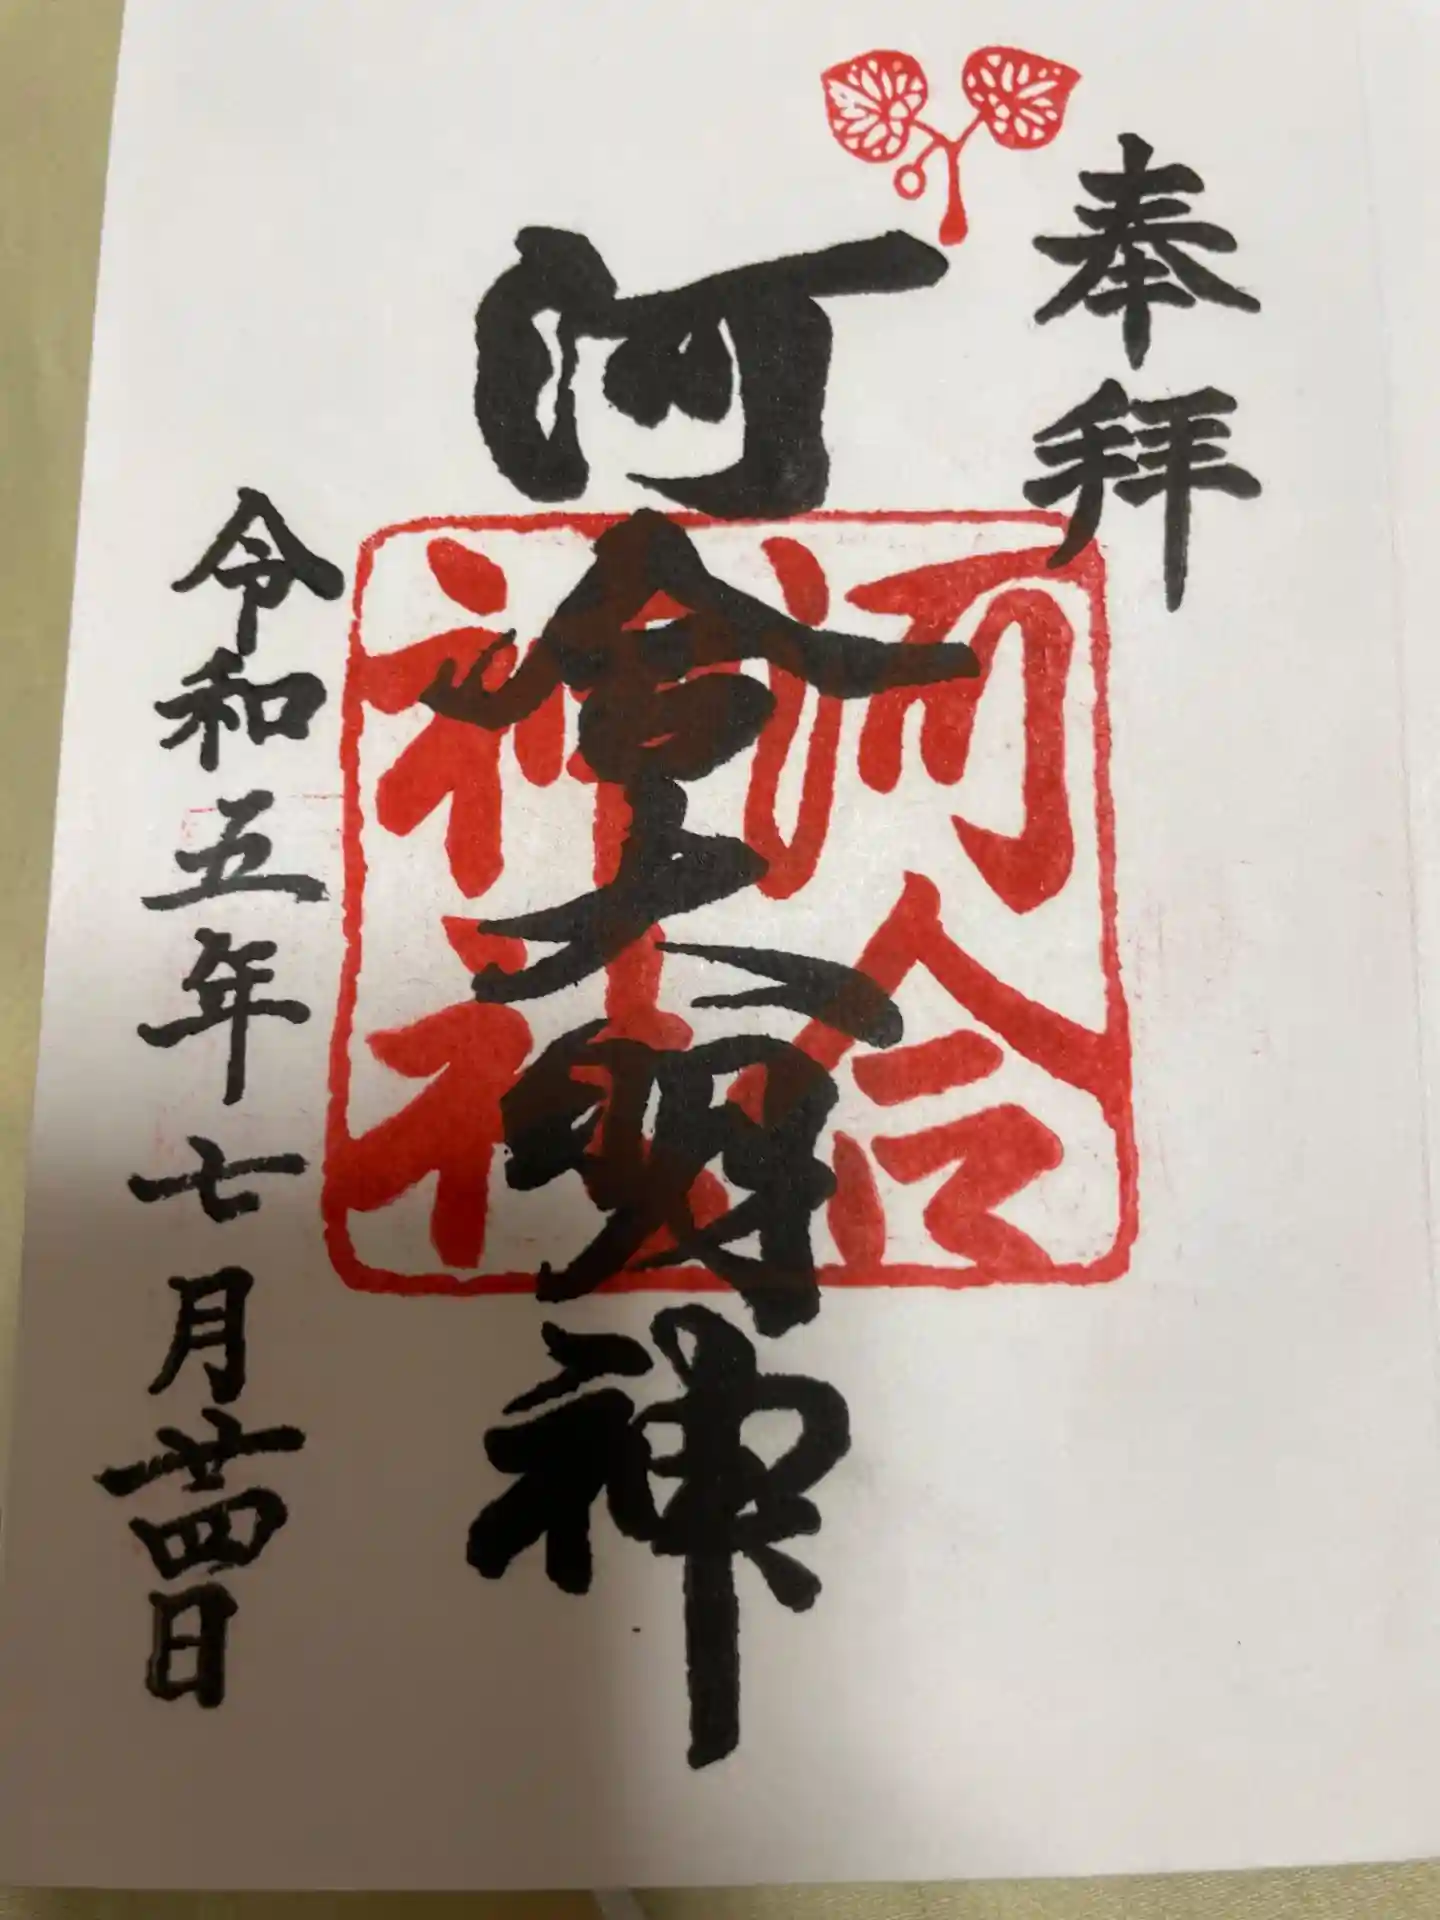 奉拝
河合神社
河會大明神
令和五年七月廿四日